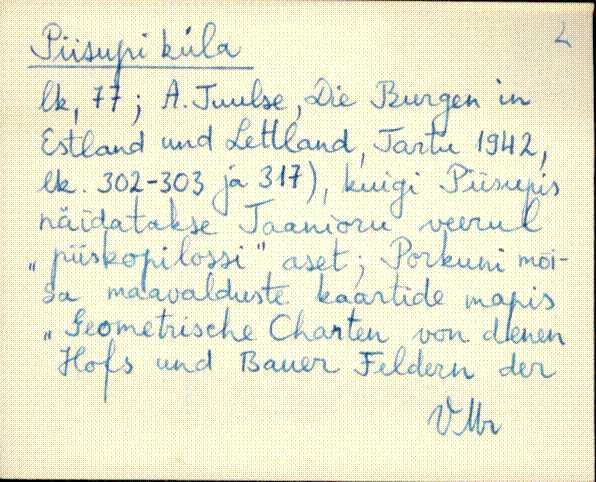 2
Piisupi küla
lk, 77; A. Tuulse, Die Burgen in
Estland und Lettland, Tartu 1942,
lk. 302-303 ja 317), kuigi Piisupis
näidatakse Jaanioru veerul
„piiskopilossi" aset; Porkuni mõi-
sa maavalduste kaartide mapis
„Geometrische Charten von denen
Hofs und Bauer Feldern der